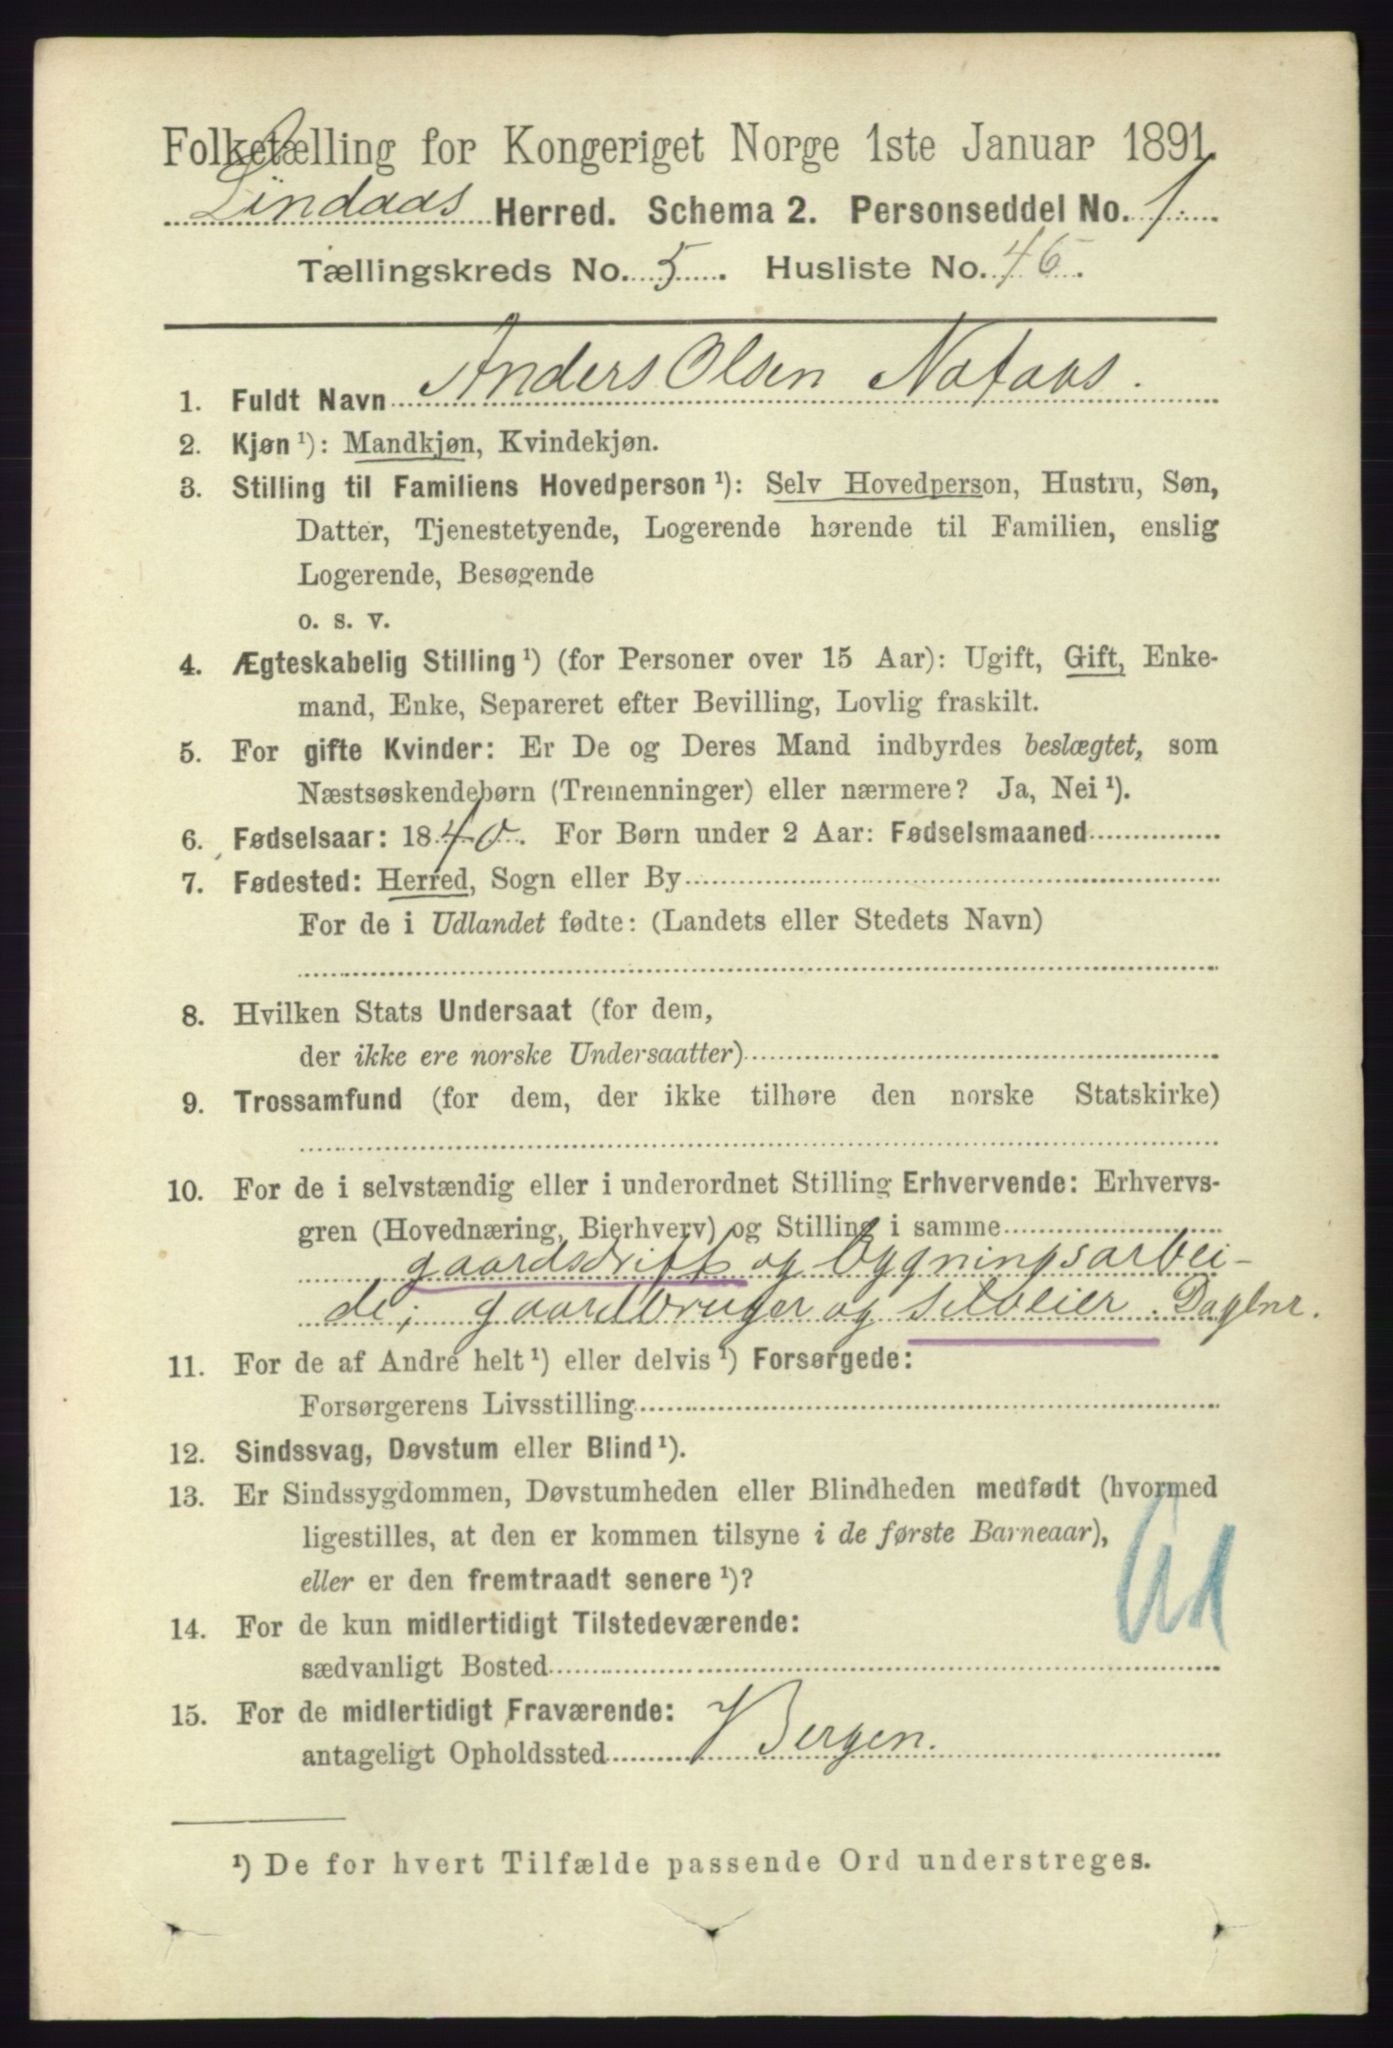 Folketælling for Kongeriget Norge 1ste Januar 1891.
Lindaas Herred. Schema 2. Personseddel No. 1.
Tællingskreds No. 5. Husliste No. 46.
1. Fuldt Navn Anders Olsen Nataas.
2. Kjøn ¹): Mandkjøn, Kvindekjøn.
3. Stilling til Familiens Hovedperson ¹): Selv Hovedperson, Hustru, Søn,
Datter, Tjenestetyende, Logerende hørende til Familien, enslig
Logerende, Besøgende
o. s. v.
4. Ægteskabelig Stilling ¹) (for Personer over 15 Aar): Ugift, Gift, Enke-
mand, Enke, Separeret efter Bevilling, Lovlig fraskilt.
5. For gifte Kvinder: Er De og Deres Mand indbyrdes beslægtet, som
Næstsøskendebørn (Tremenninger) eller nærmere? Ja, Nei ¹).
6. Fødselsaar: 1840. For Børn under 2 Aar: Fødselsmaaned
7. Fødested: Herred, Sogn eller By
For de i Udlandet fødte: (Landets eller Stedets Navn)
8. Hvilken Stats Undersaat (for dem,
der ikke ere norske Undersaatter)
9. Trossamfund (for dem, der ikke tilhøre den norske Statskirke)
10. For de i selvstændig eller i underordnet Stilling Erhvervende: Erhvervs-
gren (Hovednæring, Bierhverv) og Stilling i samme
gaardsdrift og bygningsarbei-
de; gaardbruger og selveier. Daglnr.
11. For de af Andre helt ¹) eller delvis ¹) Forsørgede:
Forsørgerens Livsstilling
12. Sindssvag, Døvstum eller Blind ¹).
13. Er Sindssygdommen, Døvstumheden eller Blindheden medfødt (hvormed
ligestilles, at den er kommen tilsyne i de første Barneaar),
eller er den fremtraadt senere ¹)?
14. For de kun midlertidigt Tilstedeværende:
sædvanligt Bosted
15. For de midlertidigt Fraværende:
antageligt Opholdssted Bergen.
¹) De for hvert Tilfælde passende Ord understreges.